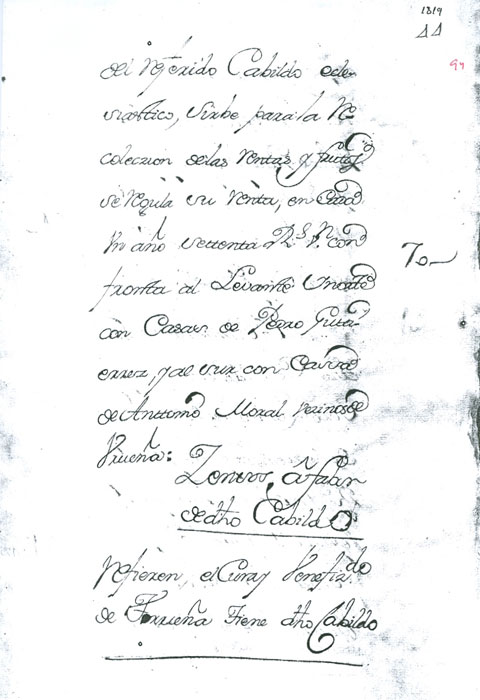 1819
11
94
del referido Cabildo ecle-
siastico, sirbe para la Re-
coleczion de las Rentas y frutos
se regula su renta, en cada
un año settenta Rs. Vn. con
fronta al Levante y norte
con Casas de Pedro Guta-
errez, y al sur con Casas
de Anttonio Moral vezinos de
Prueña:
70
Zensos, a fabor
de dho Cabildo
refieren, el Cura y Venefizdo
de Torrueña tiene dho Cabildo